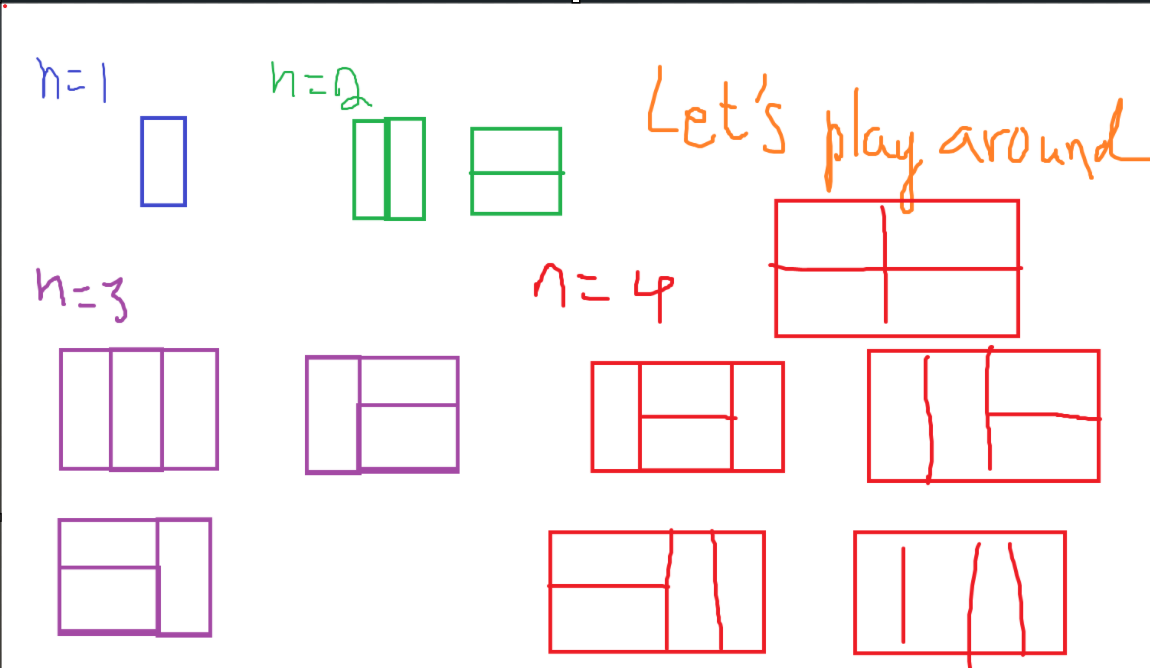 n=1
n=2
Let's play around
n=3
n=4